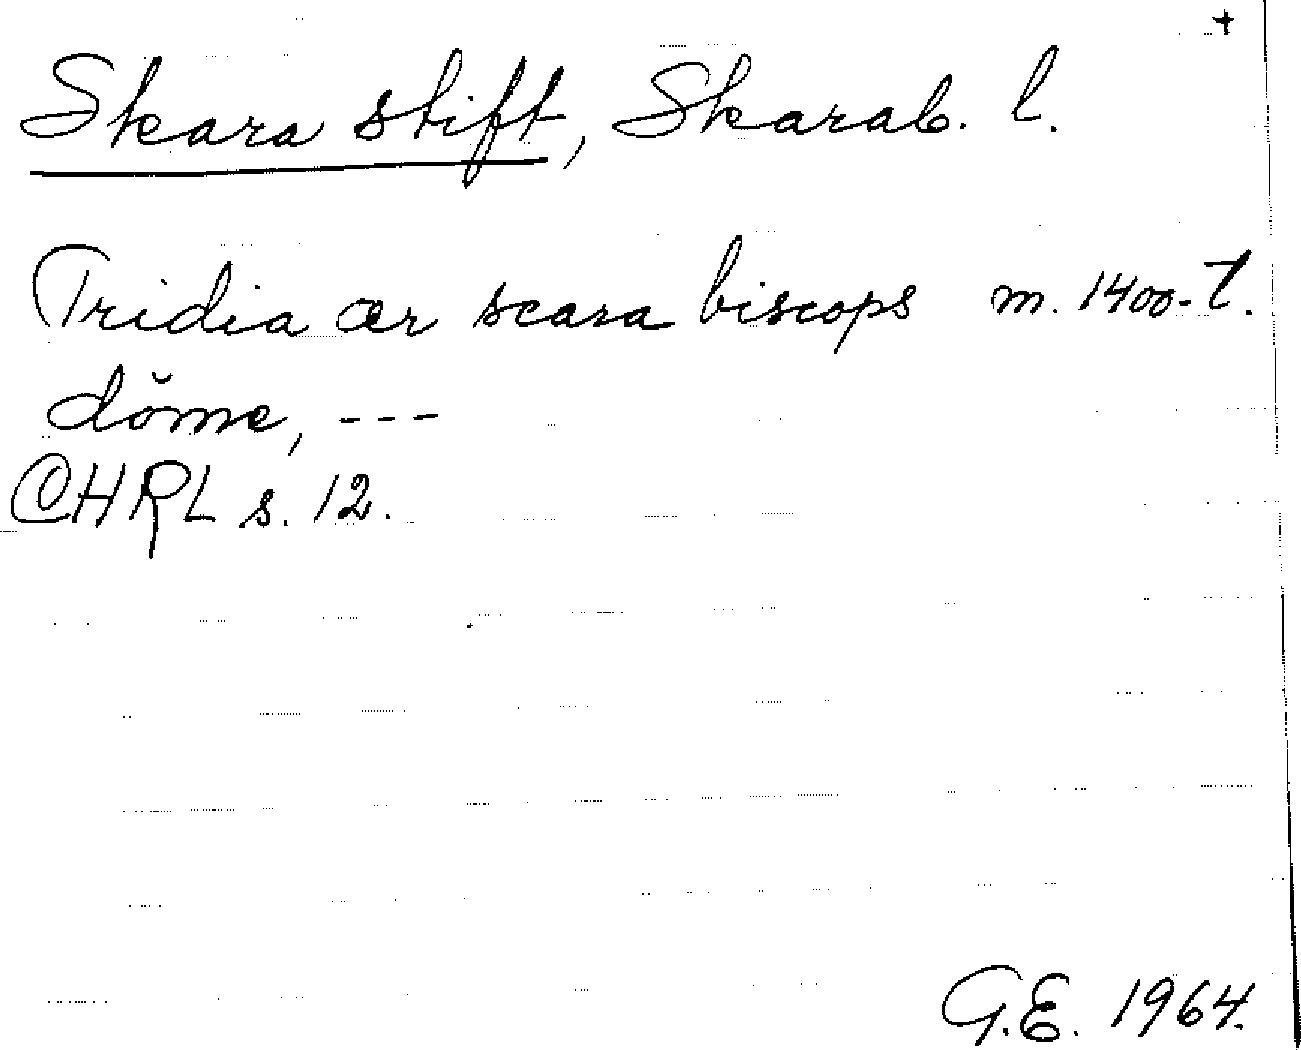 +
Skara stift, Skarab. l.
Tridia ær scara biscops m. 1400-t.
dŏme, ---
CHRL s. 12.
G.E. 1964.